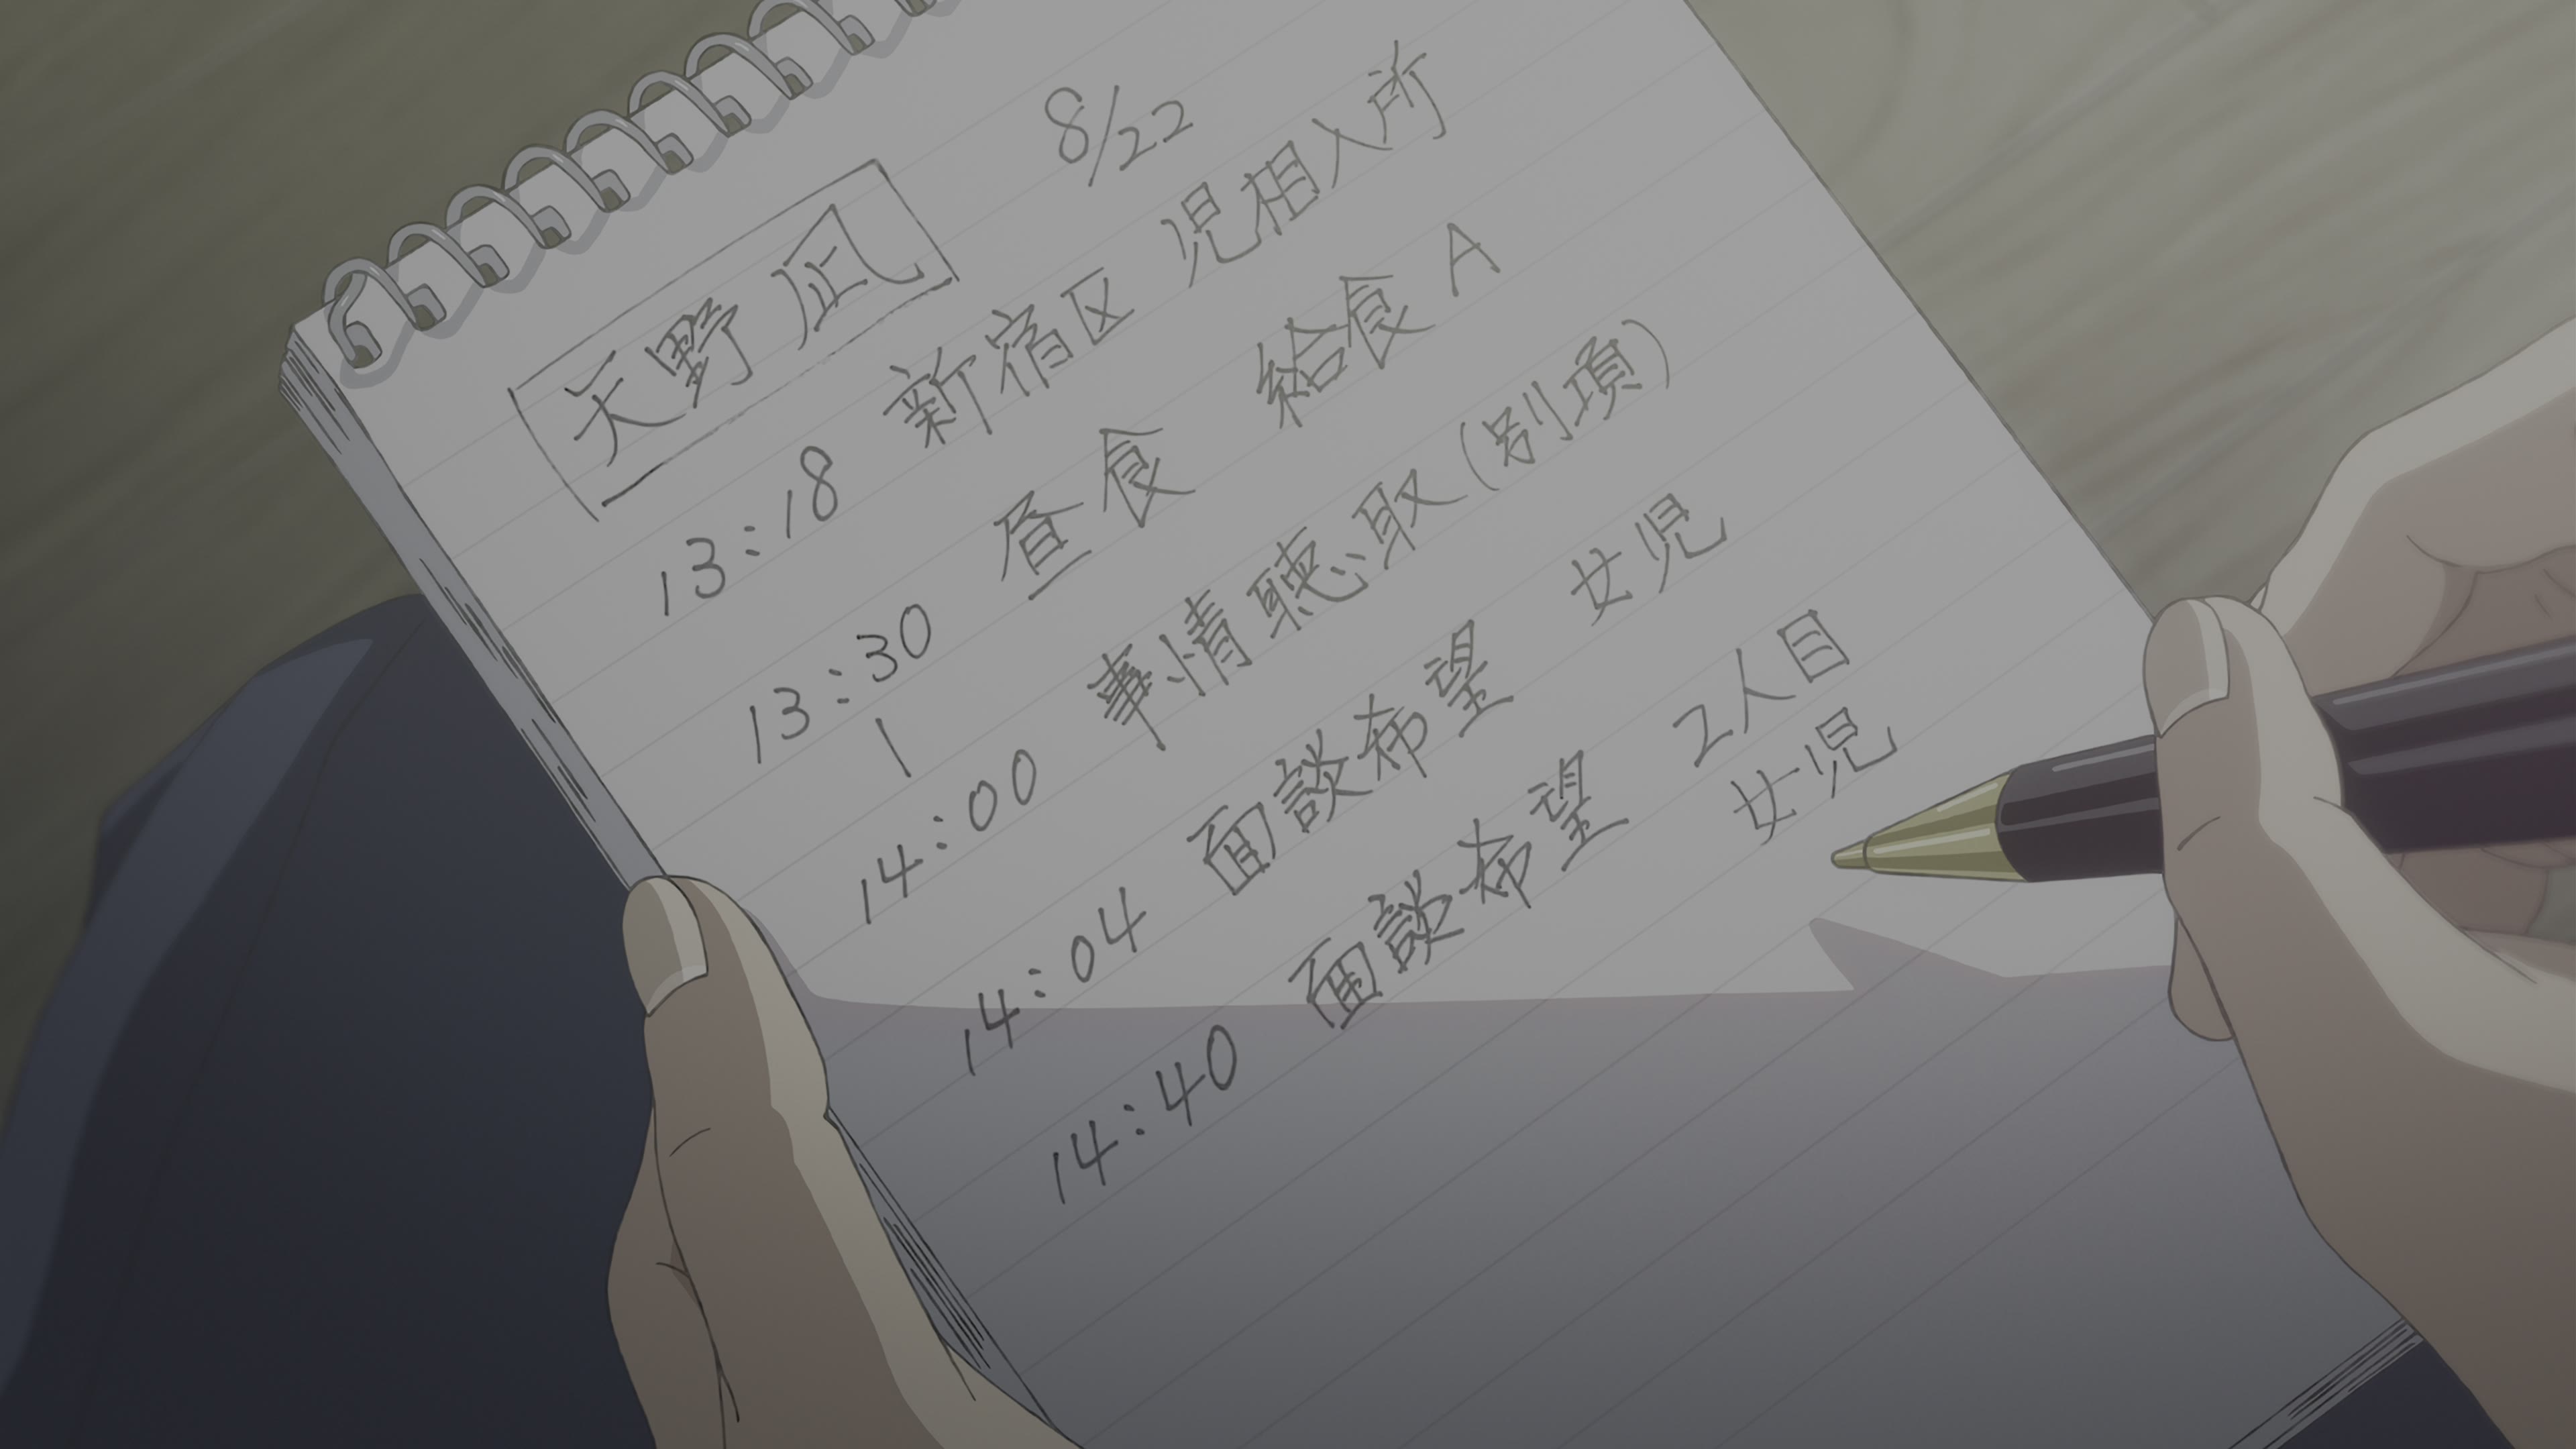 8/22
天野 凪
13:18 新宿区 児相入所
13:30 昼食 給食A
|
14:00 事情聴取(別項)
14:04 面談希望 女児
14:40 面談希望 2人目
女児